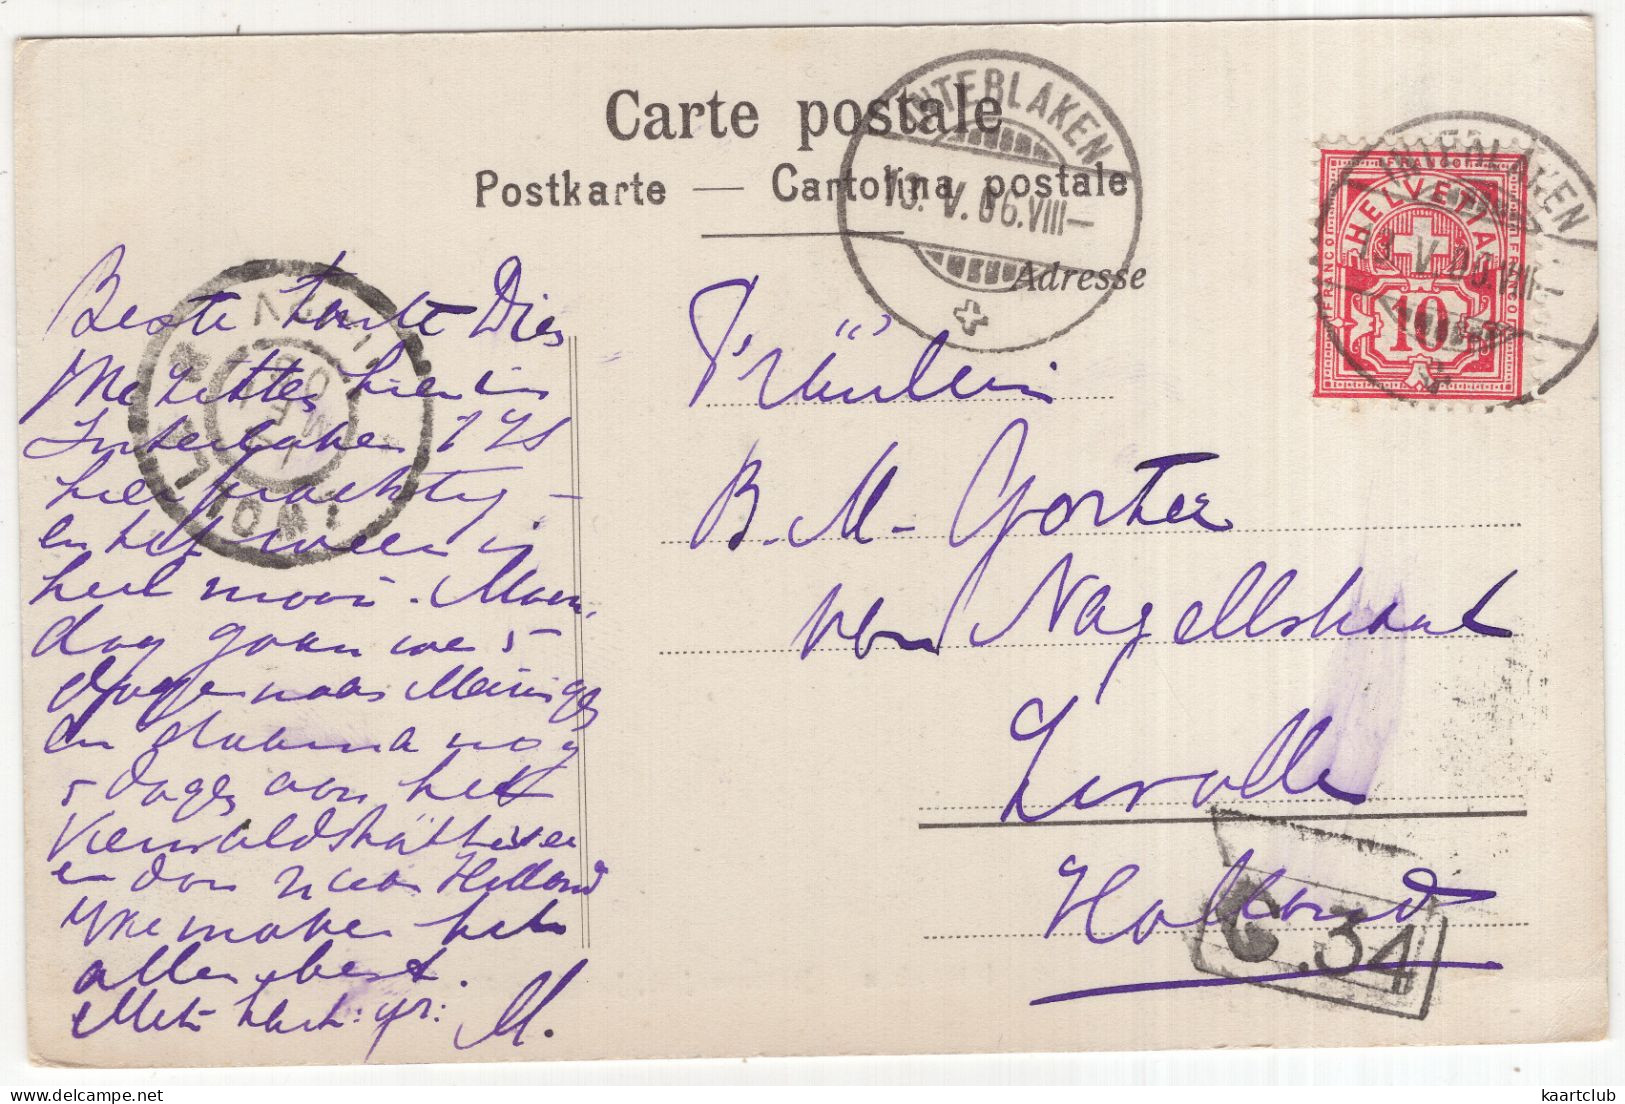 Carte postale
Postkarte — Cartolina postale
Adresse
INTERLAKEN
13. V. 06. VIII–
INTERLAKEN
13. V. 06. VIII–
HELVETIA
FRANCO
FRANCO
10
Beste Dies
We zitten hier in
Interlaken 't Is
hier prachtig –
en het weer is
heel mooi. Maan
dag gaan we 5
dagen naar Meiringen
en daarna nog
5 dagen aan het
Vierwaldstätter
en dan naar Holland
We maken het
allen best.
Met hart: gr: M.
Fräulein
B. M. Gorter
von Nagellstraat
Zwolle
Holland
C.34
kaartclub